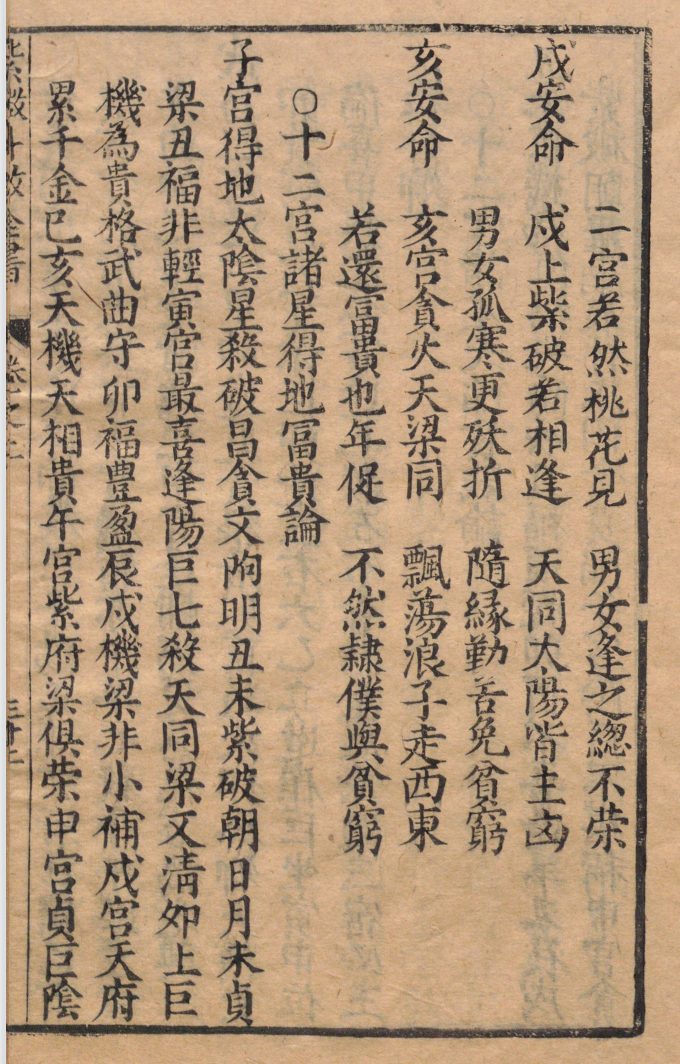 二宮若然桃花見　男女逢之緫不荣
戌安命　戌上紫破若相逢　天同太陽皆主㐫
男女孤寒更殀折　隨縁勤苦免貧窮
亥安命　亥宫貪火天梁同　飄蕩浪子走西東
若還富貴也年促　不然隷僕與貧窮
○十二宫諸星得地冨貴論
子宫得地太陰星殺破昌貪文曲明丑未紫破朝日月未貞
梁丑福非輕寅宫最喜逢陽巨七殺天同梁又清卯上巨
機為貴格武曲守卯福豊盈辰戌機梁非小補戌宫天府
累千金巳亥天機天相貴午宫紫府梁俱荣申宫貞巨陰
紫微斗数全書　卷之二